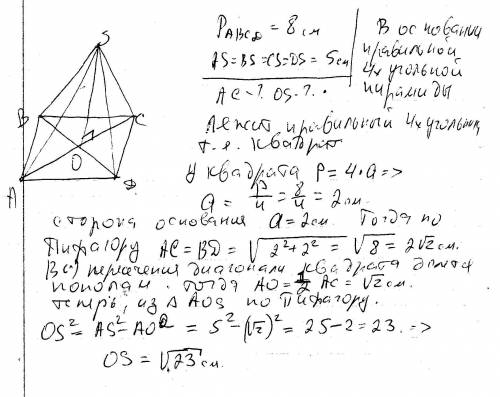 S
B
C
O
A
D
P ABCD = 8 см
AS=BS=CS=DS=5см
AC-? OS-?.
В основании
правильной
4х угольной
пирамиды
лежит правильный 4х угольник
т.е. квадрат
У квадрата P=4·a=>
a = P/4 = 8/4 = 2см.
сторона основания a=2см. Тогда по
Пифагору AC=BD=√2²+2² = √8 = 2√2 см.
В пересечения диагонали квадрата делятся
пополам. тогда AO=1/2 AC=√2 см.
теперь из ΔAOS по Пифагору.
OS²=AS²-AO²=5²-(√2)²=25-2=23.=>
OS=√23 см.